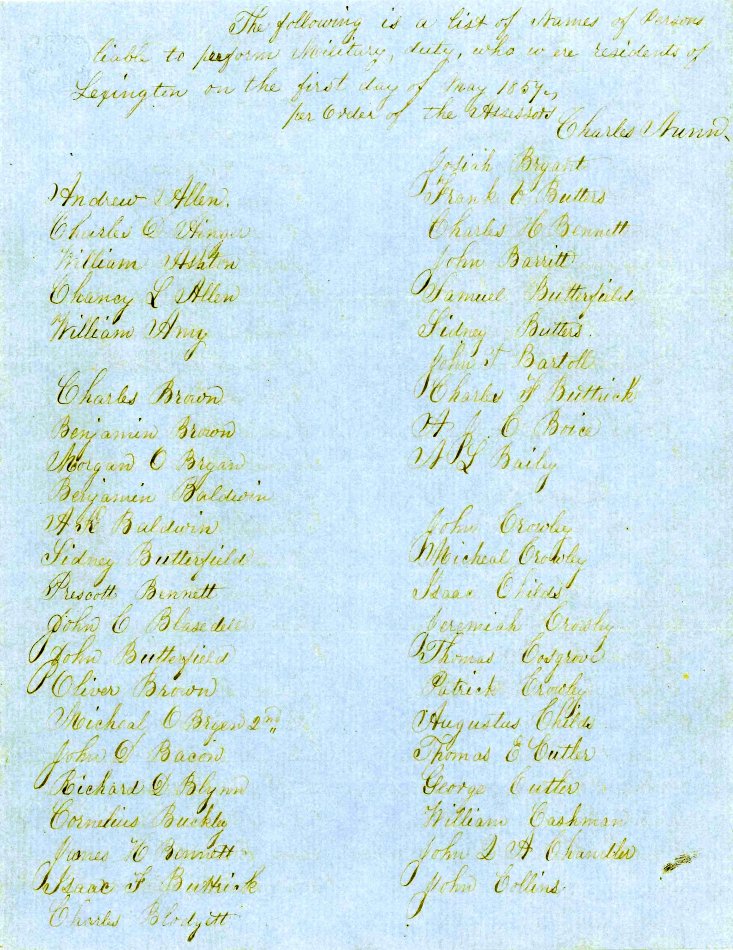 The following is a list of Names of Persons
liable to perform Military, duty, who were residents of
Lexington on the first day of May 1857,
per Order of the Assessors
Charles Nunn.
Andrew Allen.
Charles D
William Ashton
Chancy L Allen
William Amy
Charles Brown
Benjamin Brown
Morgan O Bryan
Benjamin Baldwin
A K Baldwin
Sidney Butterfield
Prescott Bennett
John C Blasedell
John Butterfield
Oliver Brown
Micheal O Bryen 2nd
John D Bacon
Richard D Blynn
Cornelius Buckley
James H Bennett
Isaac F Buttrick
Charles Blodgett
Josiah Bryant
Frank O Butters
Charles H Bennett
John Barritt
Samuel Butterfield
Sidney Butters.
John F Bartoll
Charles F Buttrick
A J C Boice
A L Baily
John Crowley
Micheal Crowley
Isaac Childs
Jeremiah Crowley
Thomas Cosgrove
Patrick Crowley
Augustus Childs
Thomas E Cutler
George Cutler
William Cashman
John Q A Chandler
John Collins